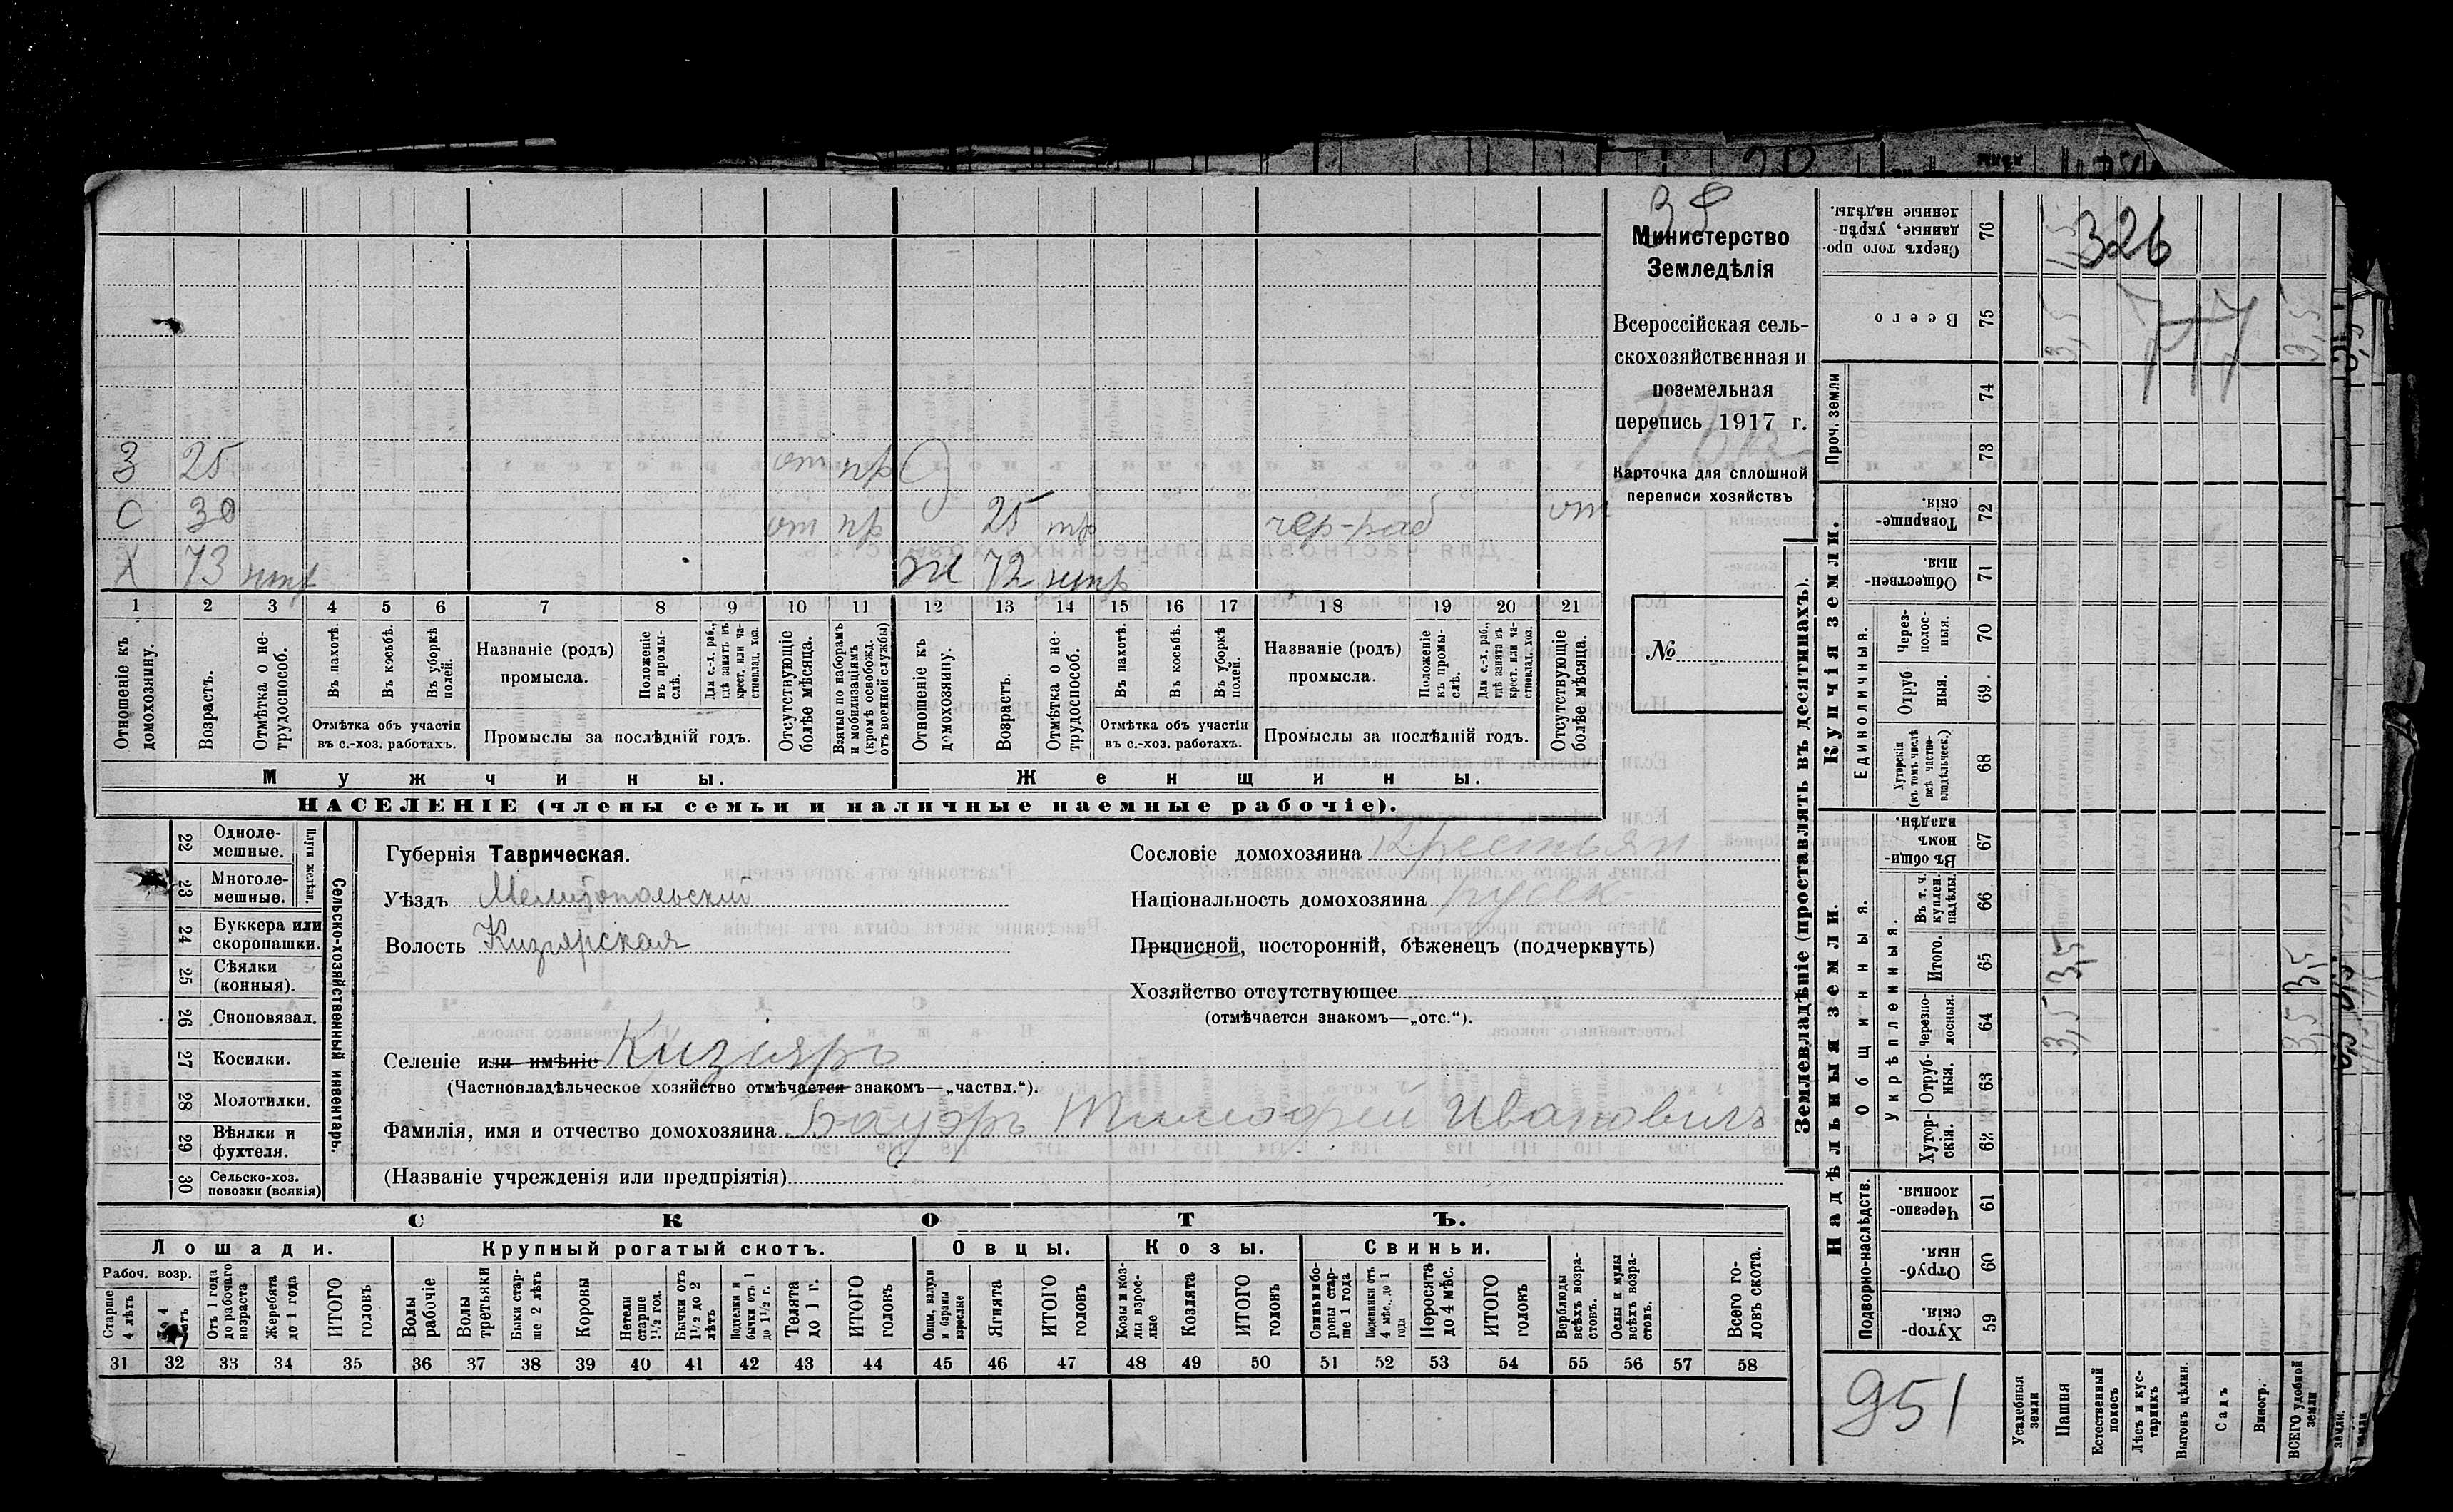 38
Министерство
Земледѣлія
Всероссійская сель-
скохозяйственная и
поземельная
перепись 1917 г.
Карточка для сплошной
переписи хозяйствъ
№
З 25 от пр
С 30 от пр Д 25 тр чер-раб от
Х 73 нтр Ж 72 нтр
1 2 3 4 5 6 7 8 9 10 11 12 13 14 15 16 17 18 19 20 21
Отношеніе къ домохозяину.
Возрастъ.
Отмѣтка о не-трудоспособ.
Въ пахотѣ.
Въ косьбѣ.
Въ уборкѣ полей.
Отмѣтка объ участіи
въ с.-хоз. работахъ.
Названіе (родъ)
промысла.
Положеніе въ промы-слѣ.
Для с.-х. раб., гдѣ занятъ въ крест. или ча-стновлад. хоз.
Промыслы за послѣдній годъ.
Отсутствующіе болѣе мѣсяца.
Взятые по наборамъ и мобилизаціямъ (кромѣ освобожд. отъ военной службы)
Отношеніе къ домохозяину.
Возрастъ.
Отмѣтка о не-трудоспособ.
Въ пахотѣ.
Въ косьбѣ.
Въ уборкѣ полей.
Отмѣтка объ участіи
въ с.-хоз. работахъ.
Названіе (родъ)
промысла.
Положеніе въ промы-слѣ.
Для с.-х. раб., гдѣ занята въ крест. или ча-стновлад. хоз.
Промыслы за послѣдній годъ.
Отсутствующіе болѣе мѣсяца.
Мужчины.
Женщины.
НАСЕЛЕНІЕ (члены семьи и наличные наемные рабочіе).
Сельско-хозяйственный инвентарь.
Плуги желѣзн.
22 Одноле-мешные.
23 Многоле-мешные.
24 Буккера или скоропашки.
25 Сѣялки (конныя).
26 Сноповязал.
27 Косилки.
28 Молотилки.
29 Вѣялки и фухтеля.
30 Сельско-хоз. повозки (всякія)
Губернія Таврическая.
Уѣздъ Мелитопольскій
Волость Кизіярская
Сословіе домохозяина Крестьян
Національность домохозяина русск
Приписной, посторонній, бѣженецъ (подчеркнуть)
Хозяйство отсутствующее
(отмѣчается знакомъ—„отс.“).
Селеніе или имѣніе Кизіяръ
(Частновладѣльческое хозяйство отмѣчается знакомъ—„частвл.“).
Фамилія, имя и отчество домохозяина Бауэръ Тимофей Ивановичъ
(Названіе учрежденія или предпріятія)
СКОТЪ.
Лошади.
Крупный рогатый скотъ.
Овцы.
Козы.
Свиньи.
Рабоч. возр.
Старше 4 лѣтъ
От 1 года до рабочаго возраста
Жеребята до 1 года
ИТОГО головъ
Волы рабочіе
Волы третьяки
Быки стар-ше 2 лѣтъ
Коровы
Нетели старше 1½ год.
Бычки отъ 1½ до 2 лѣтъ
Подтелки и бычки отъ 1 до 1½ г.
Телята до 1 г.
ИТОГО головъ
Овцы, валухи и бараны взрослые
Ягнята
ИТОГО головъ
Козы и коз-лы взрос-лые
Козлята
ИТОГО головъ
Свиньи и бо-ровы стар-ше 1 года
Подсвинки отъ 4 мѣс. до 1 года
Поросята до 4 мѣс.
ИТОГО головъ
Верблюды всѣхъ возра-стовъ.
Ослы и мулы всѣхъ возра-стовъ.
Всего го-ловъ скота.
31 32 33 34 35 36 37 38 39 40 41 42 43 44 45 46 47 48 49 50 51 52 53 54 55 56 57 58
Землевладѣніе (проставлять въ десятинахъ).
326
Сверхъ того про-данные, укрѣп-ленные надѣлы. 76 1,5
Всего 75 3,5 3,5
777
Проч. земли
74
73
Купчія земли.
Товарище-скія 72
Обществен-ныя. 71
Единоличныя.
Через-полос-ныя. 70
Отруб-ныя. 69
Хуторскія (въ томъ числѣ всѣ частно-владѣльческ.) 68
Надѣльныя земли.
Общинныя.
Въ общи-номъ владѣн. 67
Укрѣпленныя.
Въ т. ч. куплен. надѣлы. 66
Итого. 65 3,5 3,5
Черезпо-лосныя. 64 3,5 3,5
Отруб-ныя. 63
Хутор-скія. 62
Подворно-наслѣдств.
Черезпо-лосныя. 61
Отруб-ныя. 60
Хутор-скія. 59
951
Усадебныя земли
Пашня
Естественный покосъ
Лѣсъ и кус-тарникъ
Выгонъ цѣлин.
Садъ
Виногр.
ВСЕГО удобной земли